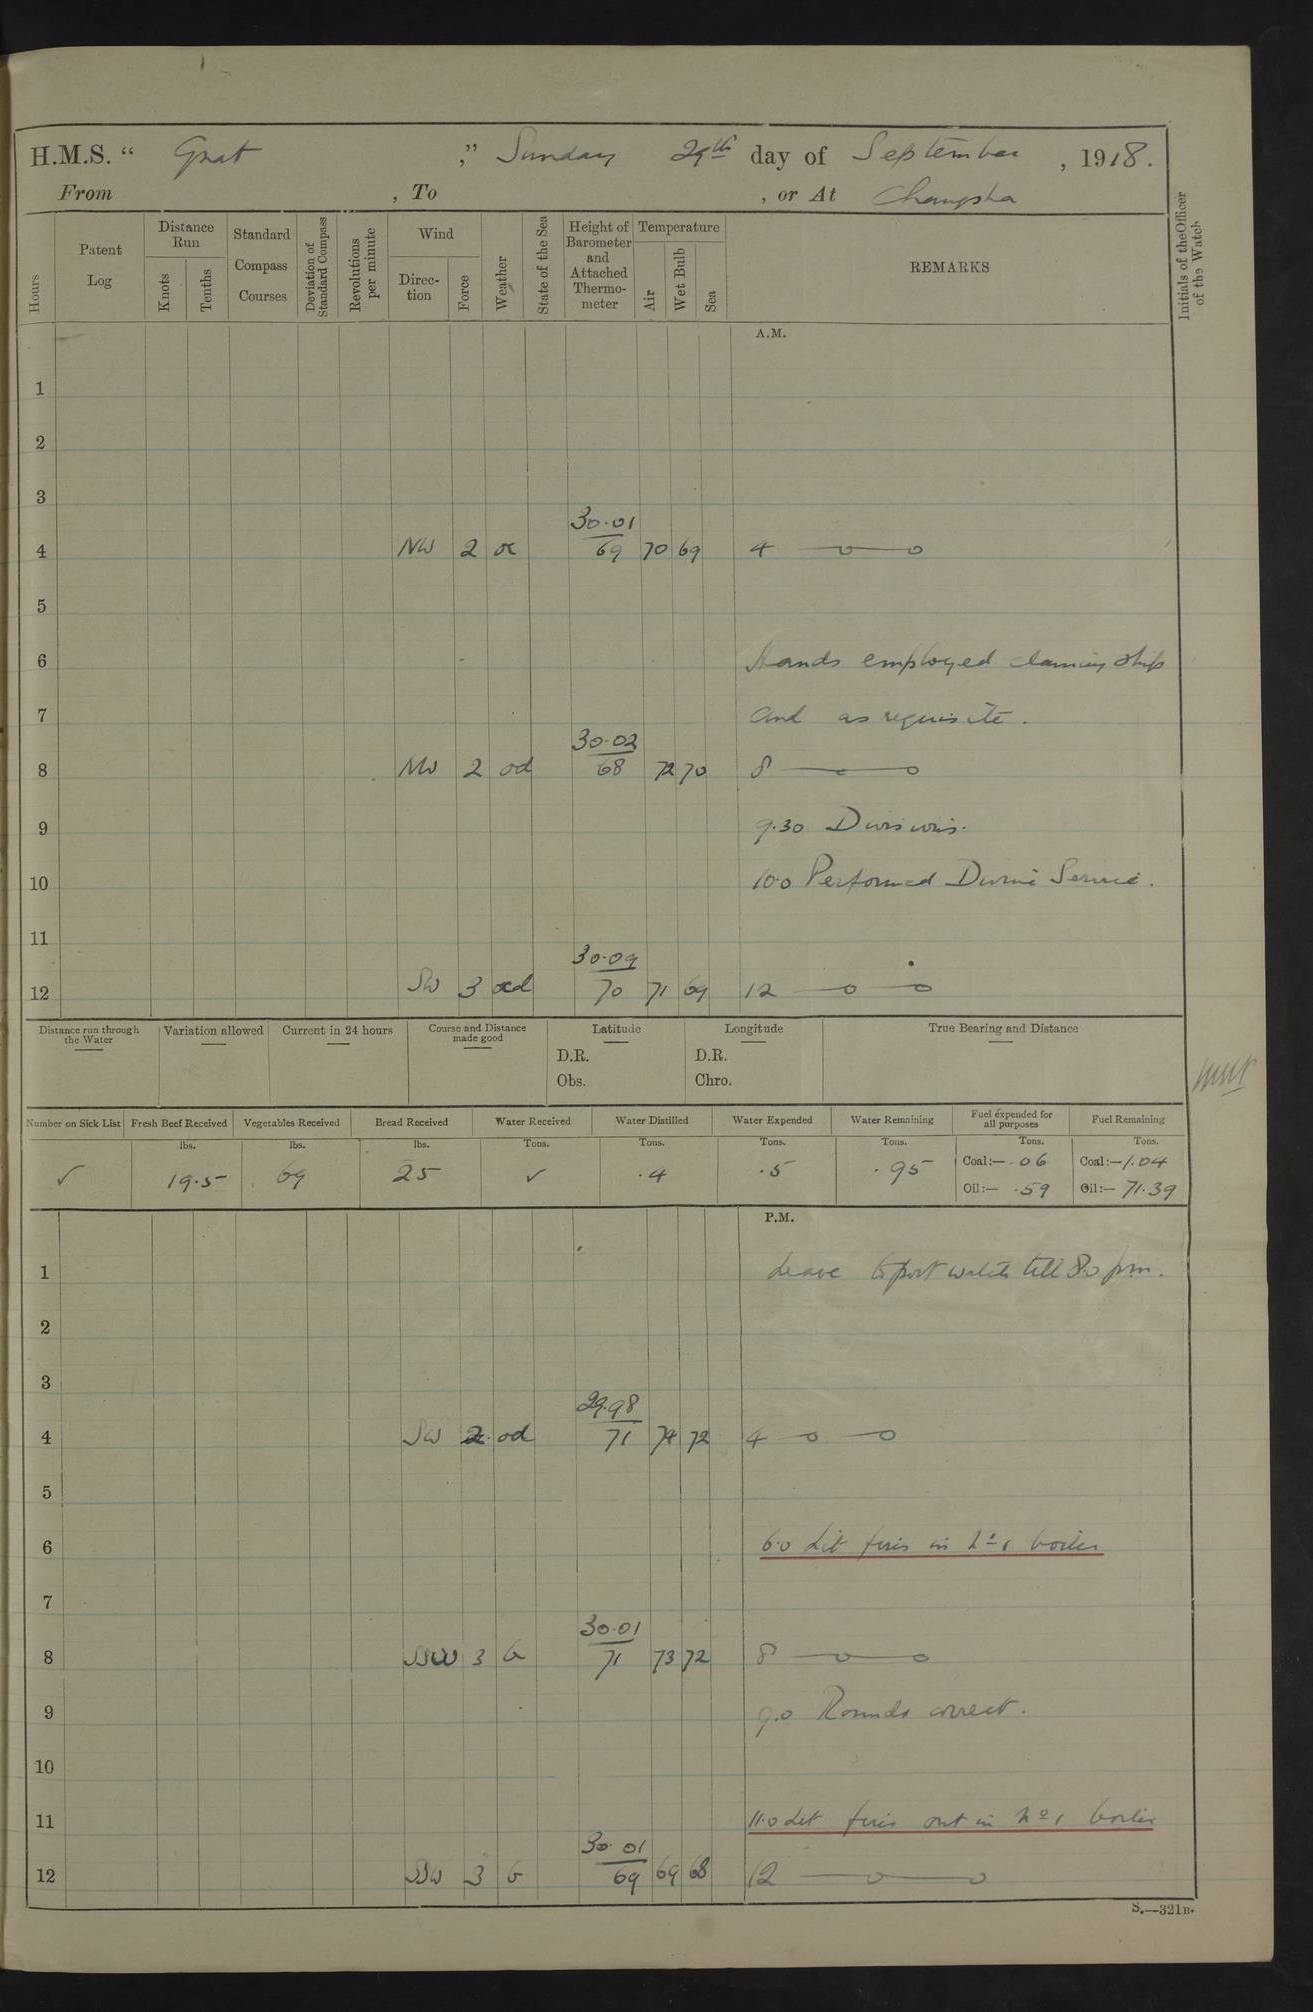 H.M.S. “ Gnat ,” Sunday 29th day of September , 1918.
From , To , or At Changsha
Hours
Patent Log
Distance Run
Knots
Tenths
Standard Compass Courses
Deviation of Standard Compass
Revolutions per minute
Wind
Direction
Force
Weather
State of the Sea
Height of Barometer and Attached Thermometer
Temperature
Air
Wet Bulb
Sea
REMARKS
Initials of the Officer of the Watch
A.M.
1
2
3
30.01
4 NW 2 oc 69 70 69 4 —o—o
5
6 Hands employed cleaning ship
7 and as requisite.
30.02
8 NW 2 od 68 72 70 8 —o—o
9 9.30 Divisions.
10 10.0 Performed Divine Service.
11
30.09
12 SW 3 od 70 71 69 12 —o —o
Distance run through the Water
Variation allowed
Current in 24 hours
Course and Distance made good
Latitude
D.R.
Obs.
Longitude
D.R.
Chro.
True Bearing and Distance
Number on Sick List Fresh Beef Received Vegetables Received Bread Received Water Received Water Distilled Water Expended Water Remaining Fuel expended for all purposes Fuel Remaining
lbs. lbs. lbs. Tons. Tons. Tons. Tons. Tons. Tons.
✓ 19.5 69 25 ✓ .4 .5 .95 Coal:— .06 Coal:— 1.04
Oil:— .59 Oil:— 71.39
P.M.
1 Leave to port watch till 8.0 pm.
2
3
29.98
4 SW 2 od 71 74 72 4 —o —o
5
6 6.0 Lit fires in No 1 boiler
7
30.01
8 SSW 3 b 71 73 72 8 —o—o
9 9.0 Rounds correct.
10
11 11.0 Let fires out in No 1 boiler
30.01
12 SSW 3 b 69 69 68 12 —o—o
S.—321B.